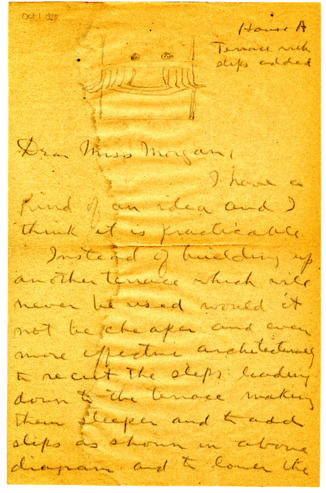 House A
Terrace with
steps added
Dear Miss Morgan,
I have a
kind of an idea and I
think it is practicable
Instead of building up
another terrace which will
never be used would it
not be cheaper and even
more effective architecturally
to recut the steps leading
down to the terrace making
them steeper and to add
steps as shown in above
diagram and to lower the